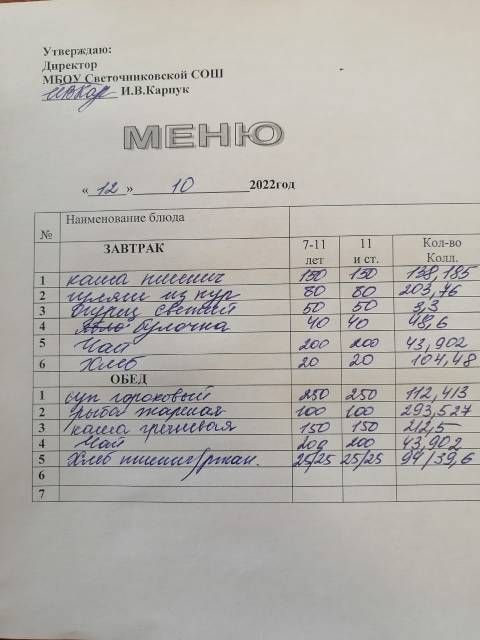 Утверждаю:
Директор
МБОУ Светочниковской СОШ
И.В.Карпук
МЕНЮ
« 12 » 10 2022год
№ Наименование блюда
ЗАВТРАК 7-11 лет 11 и ст. Кол-во Колл.
1 каша пшенич 150 150 138,185
2 гуляш из кур 80 80 203,76
3 Огурец свежий 50 50 3,3
4 булочка 40 40 48,6
5 Чай 200 200 43,902
6 Хлеб 20 20 104,48
ОБЕД
1 суп гороховый 250 250 112,413
2 рыба жареная 100 100 293,527
3 каша гречневая 150 150 212,5
4 Чай 200 200 43,902
5 Хлеб пшенич/ржан. 25/25 25/25 94/39,6
6
7